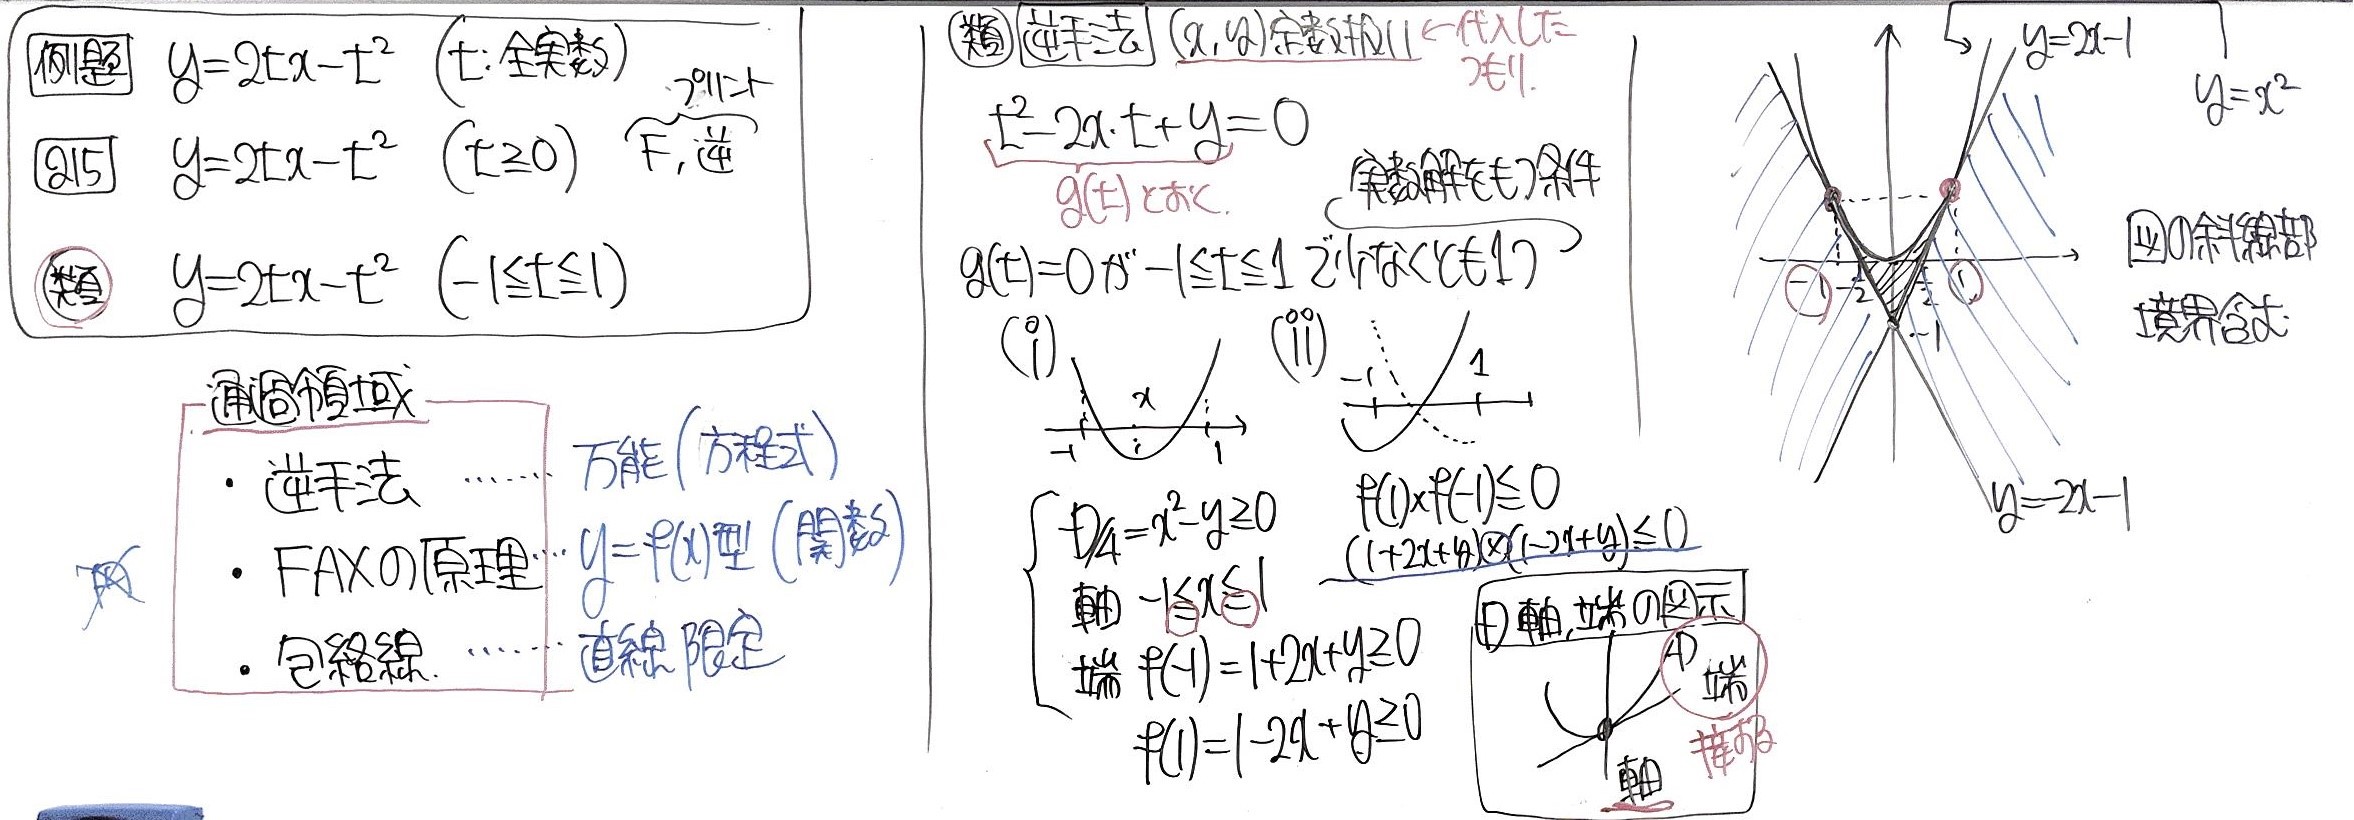 例題 y=2tx-t² (t:全実数)
プリント
215 y=2tx-t² (t≥0) F,逆
類 y=2tx-t² (-1≦t≦1)
通過領域
・逆手法 …… 万能(方程式)
・FAXの原理… y=f(x)型(関数)
・包絡線. …… 直線限定
類 逆手法 (x,y)定数扱い ←代入した
つもり.
t²-2x・t+y=0
g(t)とおく.
実数解をもつ条件
g(t)=0が -1≦t≦1で少なくとも1つ
(i) (ii)
x
-1 1
-1 1
D/4=x²-y≥0
軸 -1≦x≦1
端 f(-1)=1+2x+y≥0
f(1)=1-2x+y≥0
f(1)×f(-1)≦0
(1+2x+y)×(1-2x+y)≦0
D,軸,端の図示
D
端
接する
軸
y=2x-1
y=x²
-1 -1/2 1/2 1
-1
y=-2x-1
図の斜線部
境界含む